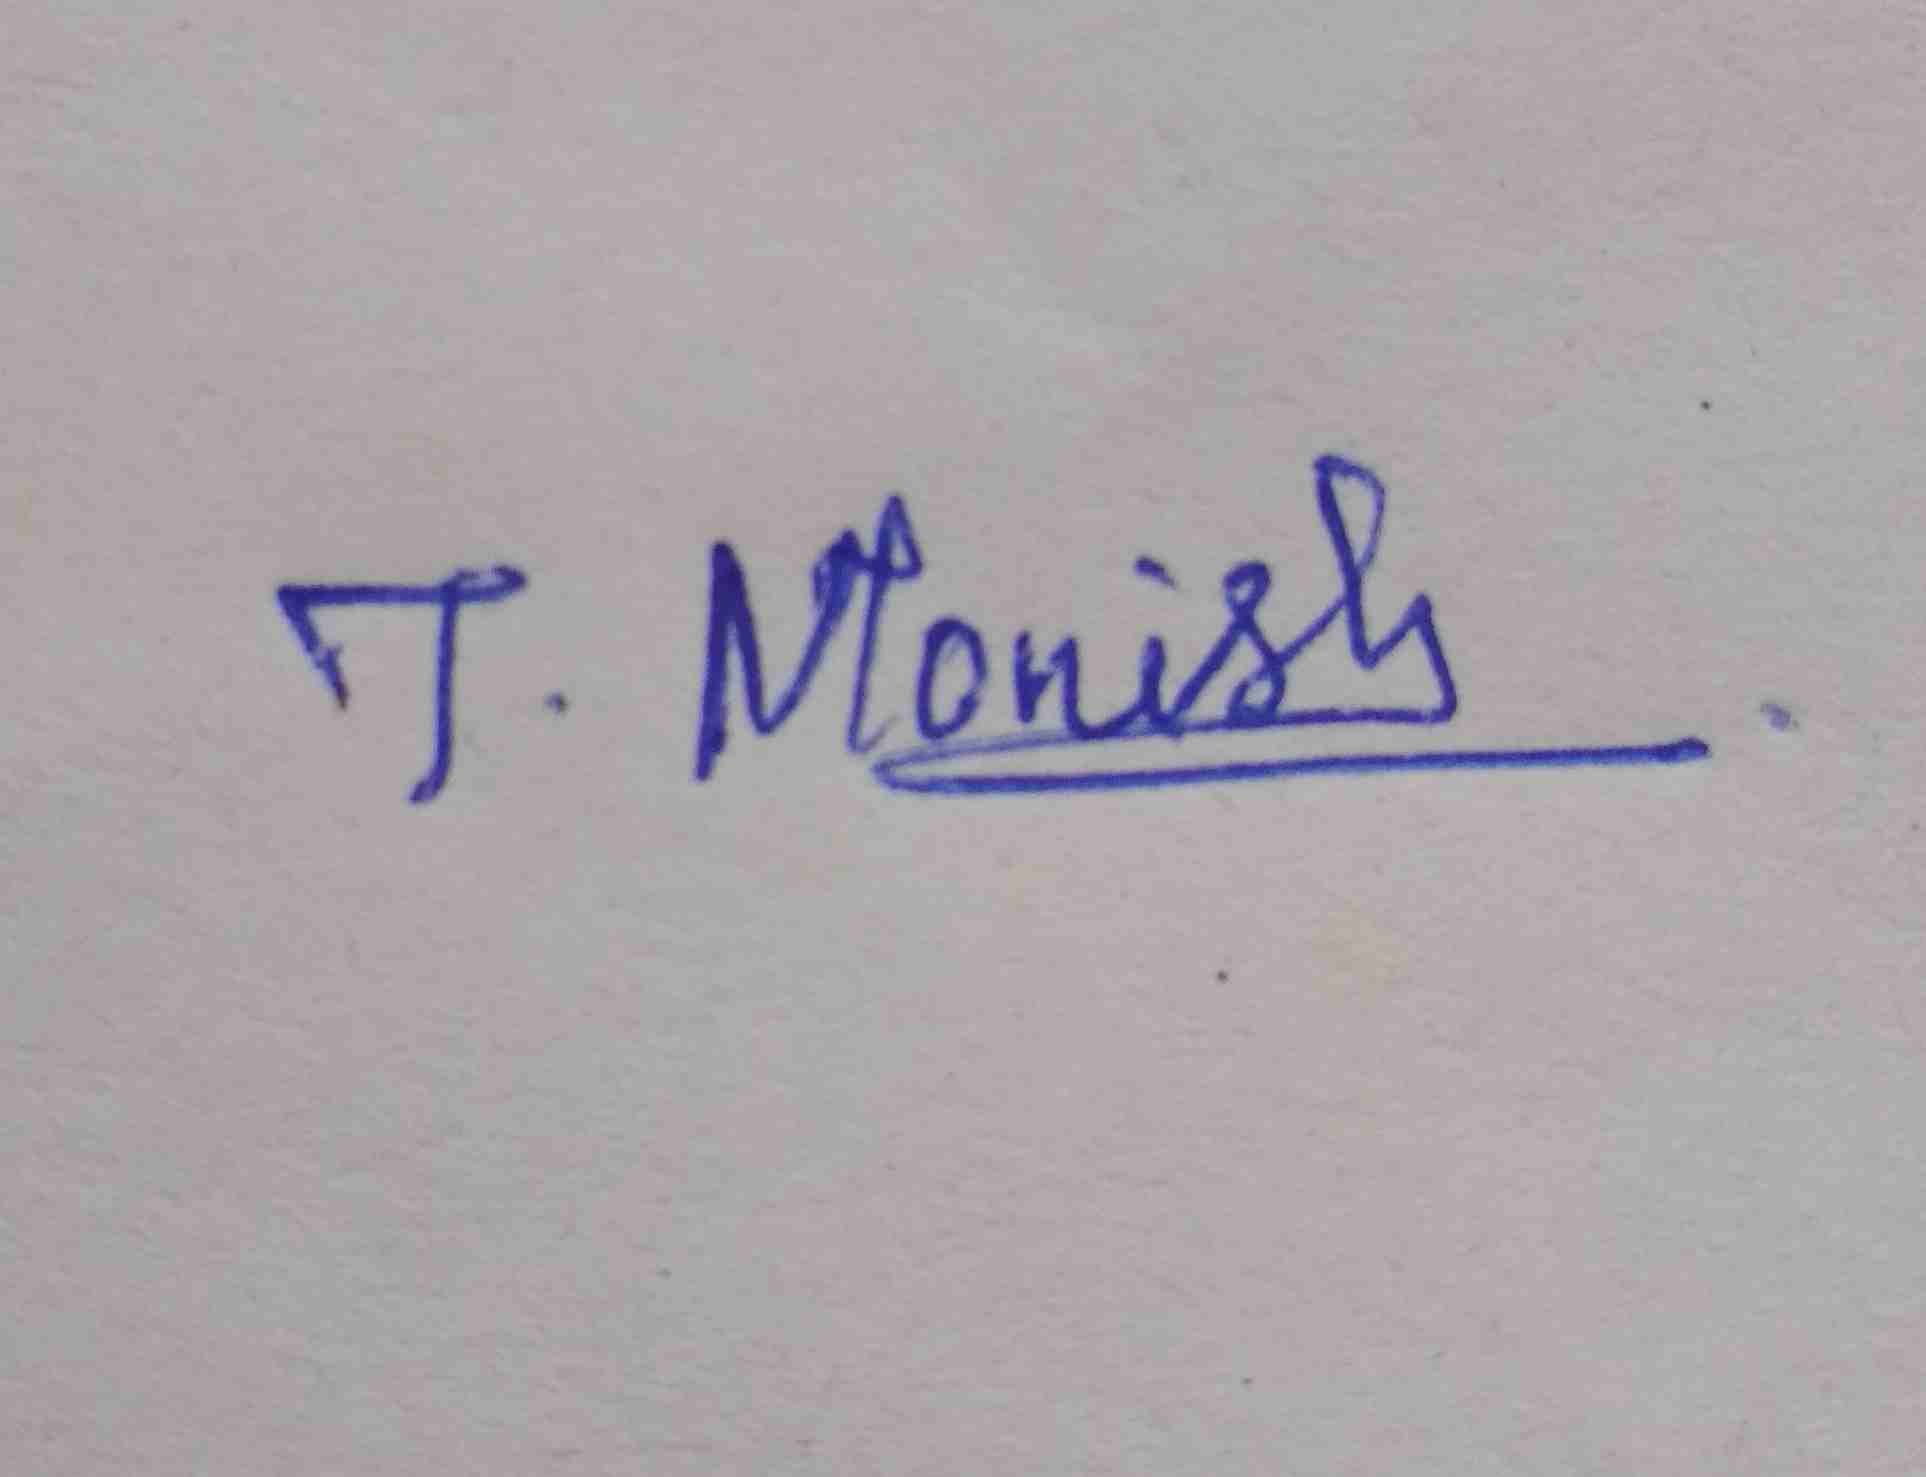 T. Monish